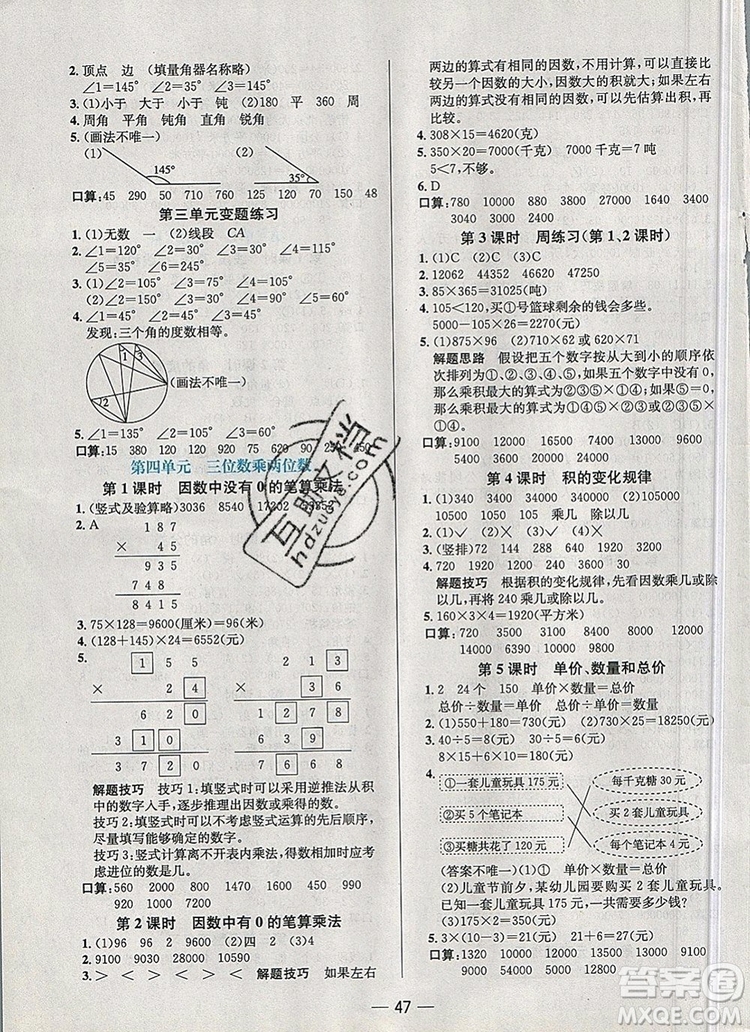 2. 顶点 边 (填量角器名称略)
∠1=145° ∠2=35° ∠3=145°
3. (1)小于 大于 小于 钝 (2)180 平 360 周
4. 周角 平角 钝角 直角 锐角
5. (画法不唯一)
(1) 145° (2) 35°
口算:45 290 50 710 760 125 120 70 150 150 48
第三单元变题练习
1. (1)无数 一 (2)线段 CA
2. ∠1=30° ∠2=50° ∠3=75° ∠4=105°
3. ∠1=90° ∠2=60° ∠3=120° ∠4=110°
4. ∠1=45° ∠2=45° ∠3=45°
发现:三个角的度数相等。
1 2 3 (画法不唯一)
5. ∠1=135° ∠2=60° ∠3=70°
口算:15 380 120 30 150 240 630 282 290
第四单元 三位数乘两位数
第1课时 因数中没有0的笔算乘法
1. (竖式及验算略)3036 8540 17202
2. A 1 8 7
× 4 5
9 3 5
7 4 8
8 4 1 5
3. 75×128=9600(厘米)=96(米)
4. (128+145)×24=6552(元)
5. 1 5 5 2 2 3
× 2 4 × 3 6
6 2 0 1 3 3 8
3 1 0 6 6 9
3 7 2 0 8 0 2 8
解题技巧 技巧1:填竖式时可以采用逆推法从积
中的数字入手,逐步推理出因数或乘得的数。
技巧2:填竖式时可以不考虑竖式运算的先后顺序,
尽量先填写能够确定的数字。
技巧3:竖式计算离不开表内乘法,填竖式时要考虑
进位的数是几。
口算:560 2000 1000 1800 1200 1600 840
480 990 660 4800 390
第2课时 因数中有0的笔算乘法
1. (1)96 96 2 9600 (2)四 2 (3)4
3. > < > < > < 解题技巧 如果左右
两边的算式有相同的因数,不用计算,可以直接比
较另一个因数的大小,因数大的积就大;如果左右
两边的算式没有相同的因数,可以先估算出积,再
比较。
4. 308×15=4620(克)
5. 350×20=7000(千克) 7000千克=7吨
5<7,不够。
6. D
口算:780 10000 880 3800 27000 640 9000
3040 3000 2400 2400 640
第3课时 周练习(第1、2课时)
1. (1)C (2)C (3)C
2. 12062 44352 46020 47250
3. 85×365=31025(吨)
4. 105<120,买①号篮球剩余的钱会多些。
5000-105×26=2270(元)
5. (1)875×96 (2)107×62或610×71
解题思路 假设把五个数字按从大到小的顺序依
次排列为①、②、③、④、⑤,如果五个数字中没有0,
那么乘积最大的算式为②③⑤×①④;如果有0,
那么乘积最大的算式为②④⑤×①③。
口算:9100 12000 8000 6000 12000 2100
14000 35000 6400 24000 600 9600
第4课时 积的变化规律
1. (1)340 3400 34000 (2)1050 2100
10500 1050 105 乘几 除以几
2. (1)√ (2)× (3)√ (4)×
3. (竖排)72 144 288 640 160 1920
4. 720 1920 120 11 60 3600
解题技巧 根据积的变化规律,先看因数乘几或除
以几,再将240乘几或除以几。
5. 160×3×4=1920(平方米)
口算:9000 6000 1000 14000 9000 1132
14000 6390 12000 12000 10000 10000
第5课时 单价、数量和总价
1. 2 24 个 150 单价×数量=总价
总价÷数量=单价 总价÷单价=数量
2. (1)550+180=730(元) (2)730×25=18250(元)
3. 40÷5=8(元) 30÷5=6(元)
8×15+6×10=180(元)
4. ①一套儿童玩具175元 每千克糖30元
②买5个笔记本 买2套儿童玩具
③买糖共花了120元 每个笔记本4元
(答案不唯一)(1)① 单价×数量=总价
(2)儿童节前夕,某幼儿园要购买2套儿童玩具。
每套儿童玩具175元,一共需要多少钱?
(3)175×2=350(元)
5. 3×(10-3)=21(元) 21+6=27(元)
口算:1320 10000 12000 12000 14000 15000
9000 12000 5100 10800 12000 12000
互助文档
hdzuoye.com
47
答案圈
MXQE.COM